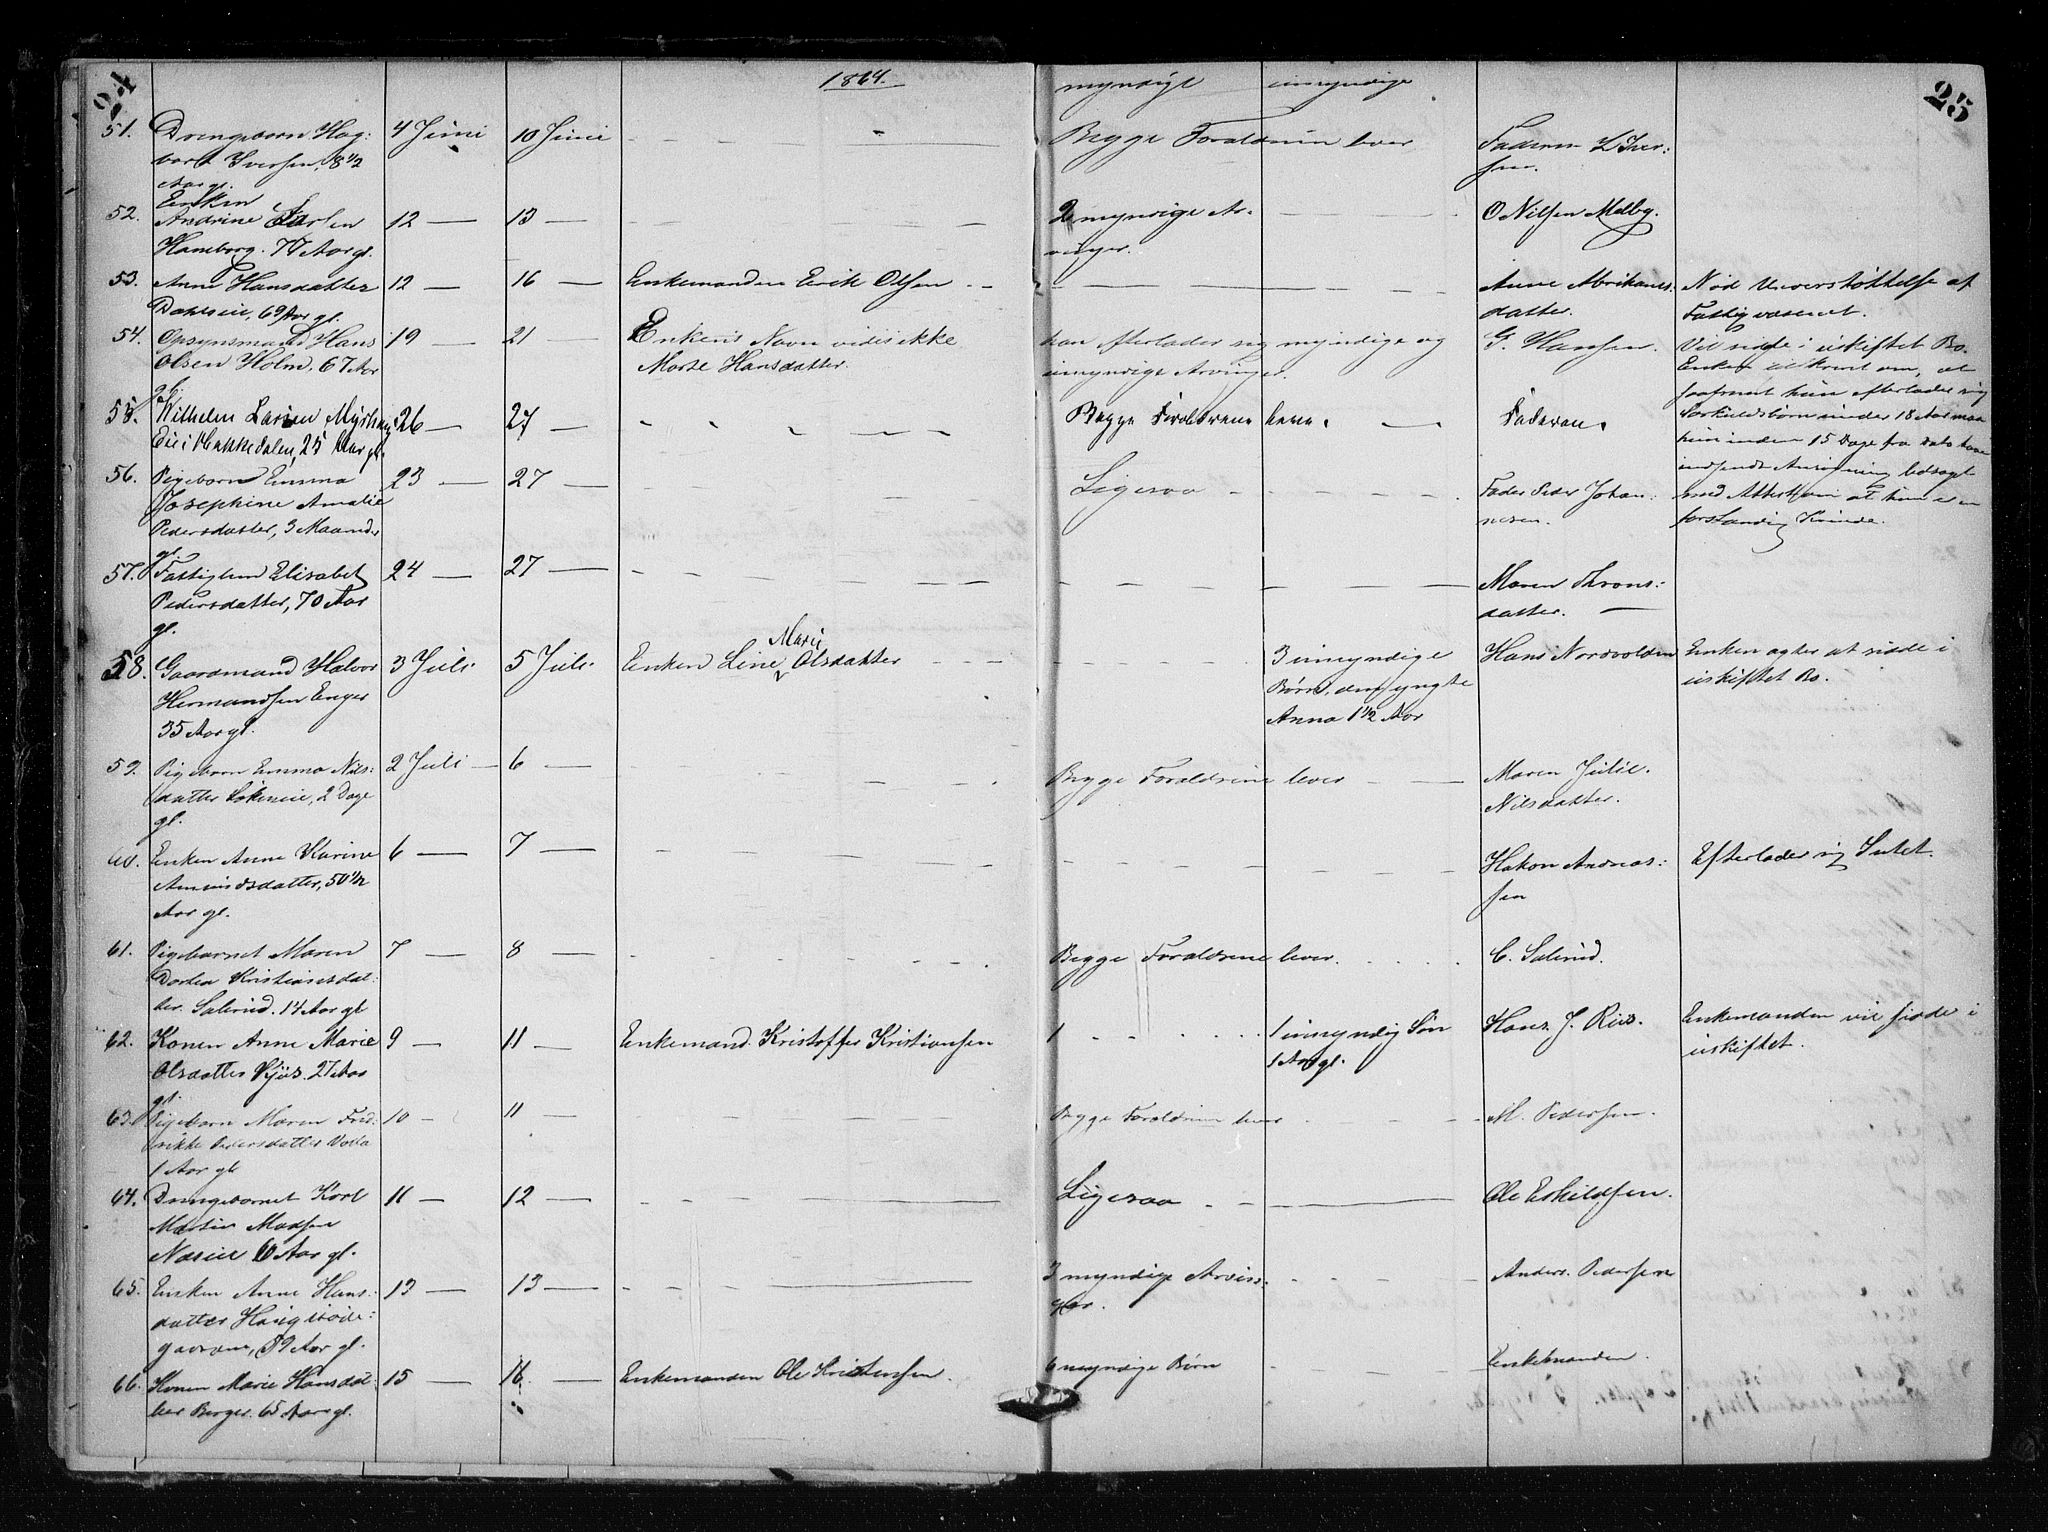 24
1864.
myndige umyndige
25
51. Drengebarn Hag: 4 Juni 10 Juni Begge Forældrene lever Faderen L Iver:
bart Iversen, 8 1/2 sen.
Aar gl.
Enken
52. Andrine Larsen 12 13 2 myndige Ar- O Nilsen Melby.
Hamborg. 77 Aar gl. vinger.
53. Anne Hansdatter 12 16 Enkemanden Erik Olsen Anne Abrahams- Nød Understøttelse af
Dahlseie, 69 Aar gl. datter. Fattigvæsenet.
54. Opsynsmand Hans 19 21 Enkens Navn vides ikke han efterlader sig myndige og G. Hansen. Vil sidde i uskiftet Bo.
Olsen Holm, 67 Aar Marte Hansdatter. umyndige Arvinger. Enken om, at
gl. saafremt hun efterlader sig
55. Wilhelm Larsen 26 27 Begge Forældrene leve. Faderen. Særkuldsbørn under 18 Aar maa
Eie i Hakkedalen, 25 Aar gl. hun inden 15 Dage fra Dato have
56. Pigebarn Emma 23 27 Ligesaa Fader Peder Johan- indsendt Ansøgning ledsaget
Josephine Amalie nesen. med Attest om at hun er en
Pedersdatter, 3 Maaneder forstandig Kvinde.
gl.
57. Fattiglem Elisabet 24 27 Maren Throns:
Pedersdatter, 70 Aar datter.
gl.
58. Gaardmand Halvor 3 Juli 5 Juli Enken Line Marie Olsdatter 3 umyndige Hans Nordvolden Enken agter at sidde i
Hermandsen Enger Børn, den yngste uskiftet Bo.
35 Aar gl. Anna 1 1/2 Aar
59. Pigebarn Emma Nils: 2 Juli 6 Begge Forældrene lever Maren Julie
datter Løkeneie, 2 Dage Nilsdatter.
gl.
60. Enken Anne Karine 6 7 Hakon Andreas: Efterlader sig Intet.
Amundsdatter, 50 1/2 sen
Aar gl.
61. Pigebarnet Maren 7 8 Begge Forældrene lever. C. Salerud.
Dortea Kristiansdat:
ter Salerud. 14 Aar gl
62. Konen Anne Marie 9 11 Enkemand Kristoffer Kristiansen 1 1 umyndig Søn Hans J. Riis. Enkemanden vil sidde i
Olsdatter Kjøs. 27 Aar 1 Aar gl. uskiftet.
gl.
63. Pigebarn Maren Fred: 10 11 Begge Forældrene lever M. Pedersen.
rikke Pedersdatter
1 Aar gl
64. Drengebarnet Karl 11 12 Ligesaa Ole Eskildsen.
Martin Madsen
Næseie 10 Aar gl.
65. Enken Anne Hans: 13 13 3 myndige Arvin: Anders Pedersen
datter Haugsøde: ger.
gaarden, 89 Aar gl.
66. Konen Marie Hansdat: 15 16 Enkemanden Ole Kristensen. 6 myndige Børn Enkemanden.
ter Berger. 65 Aar gl.